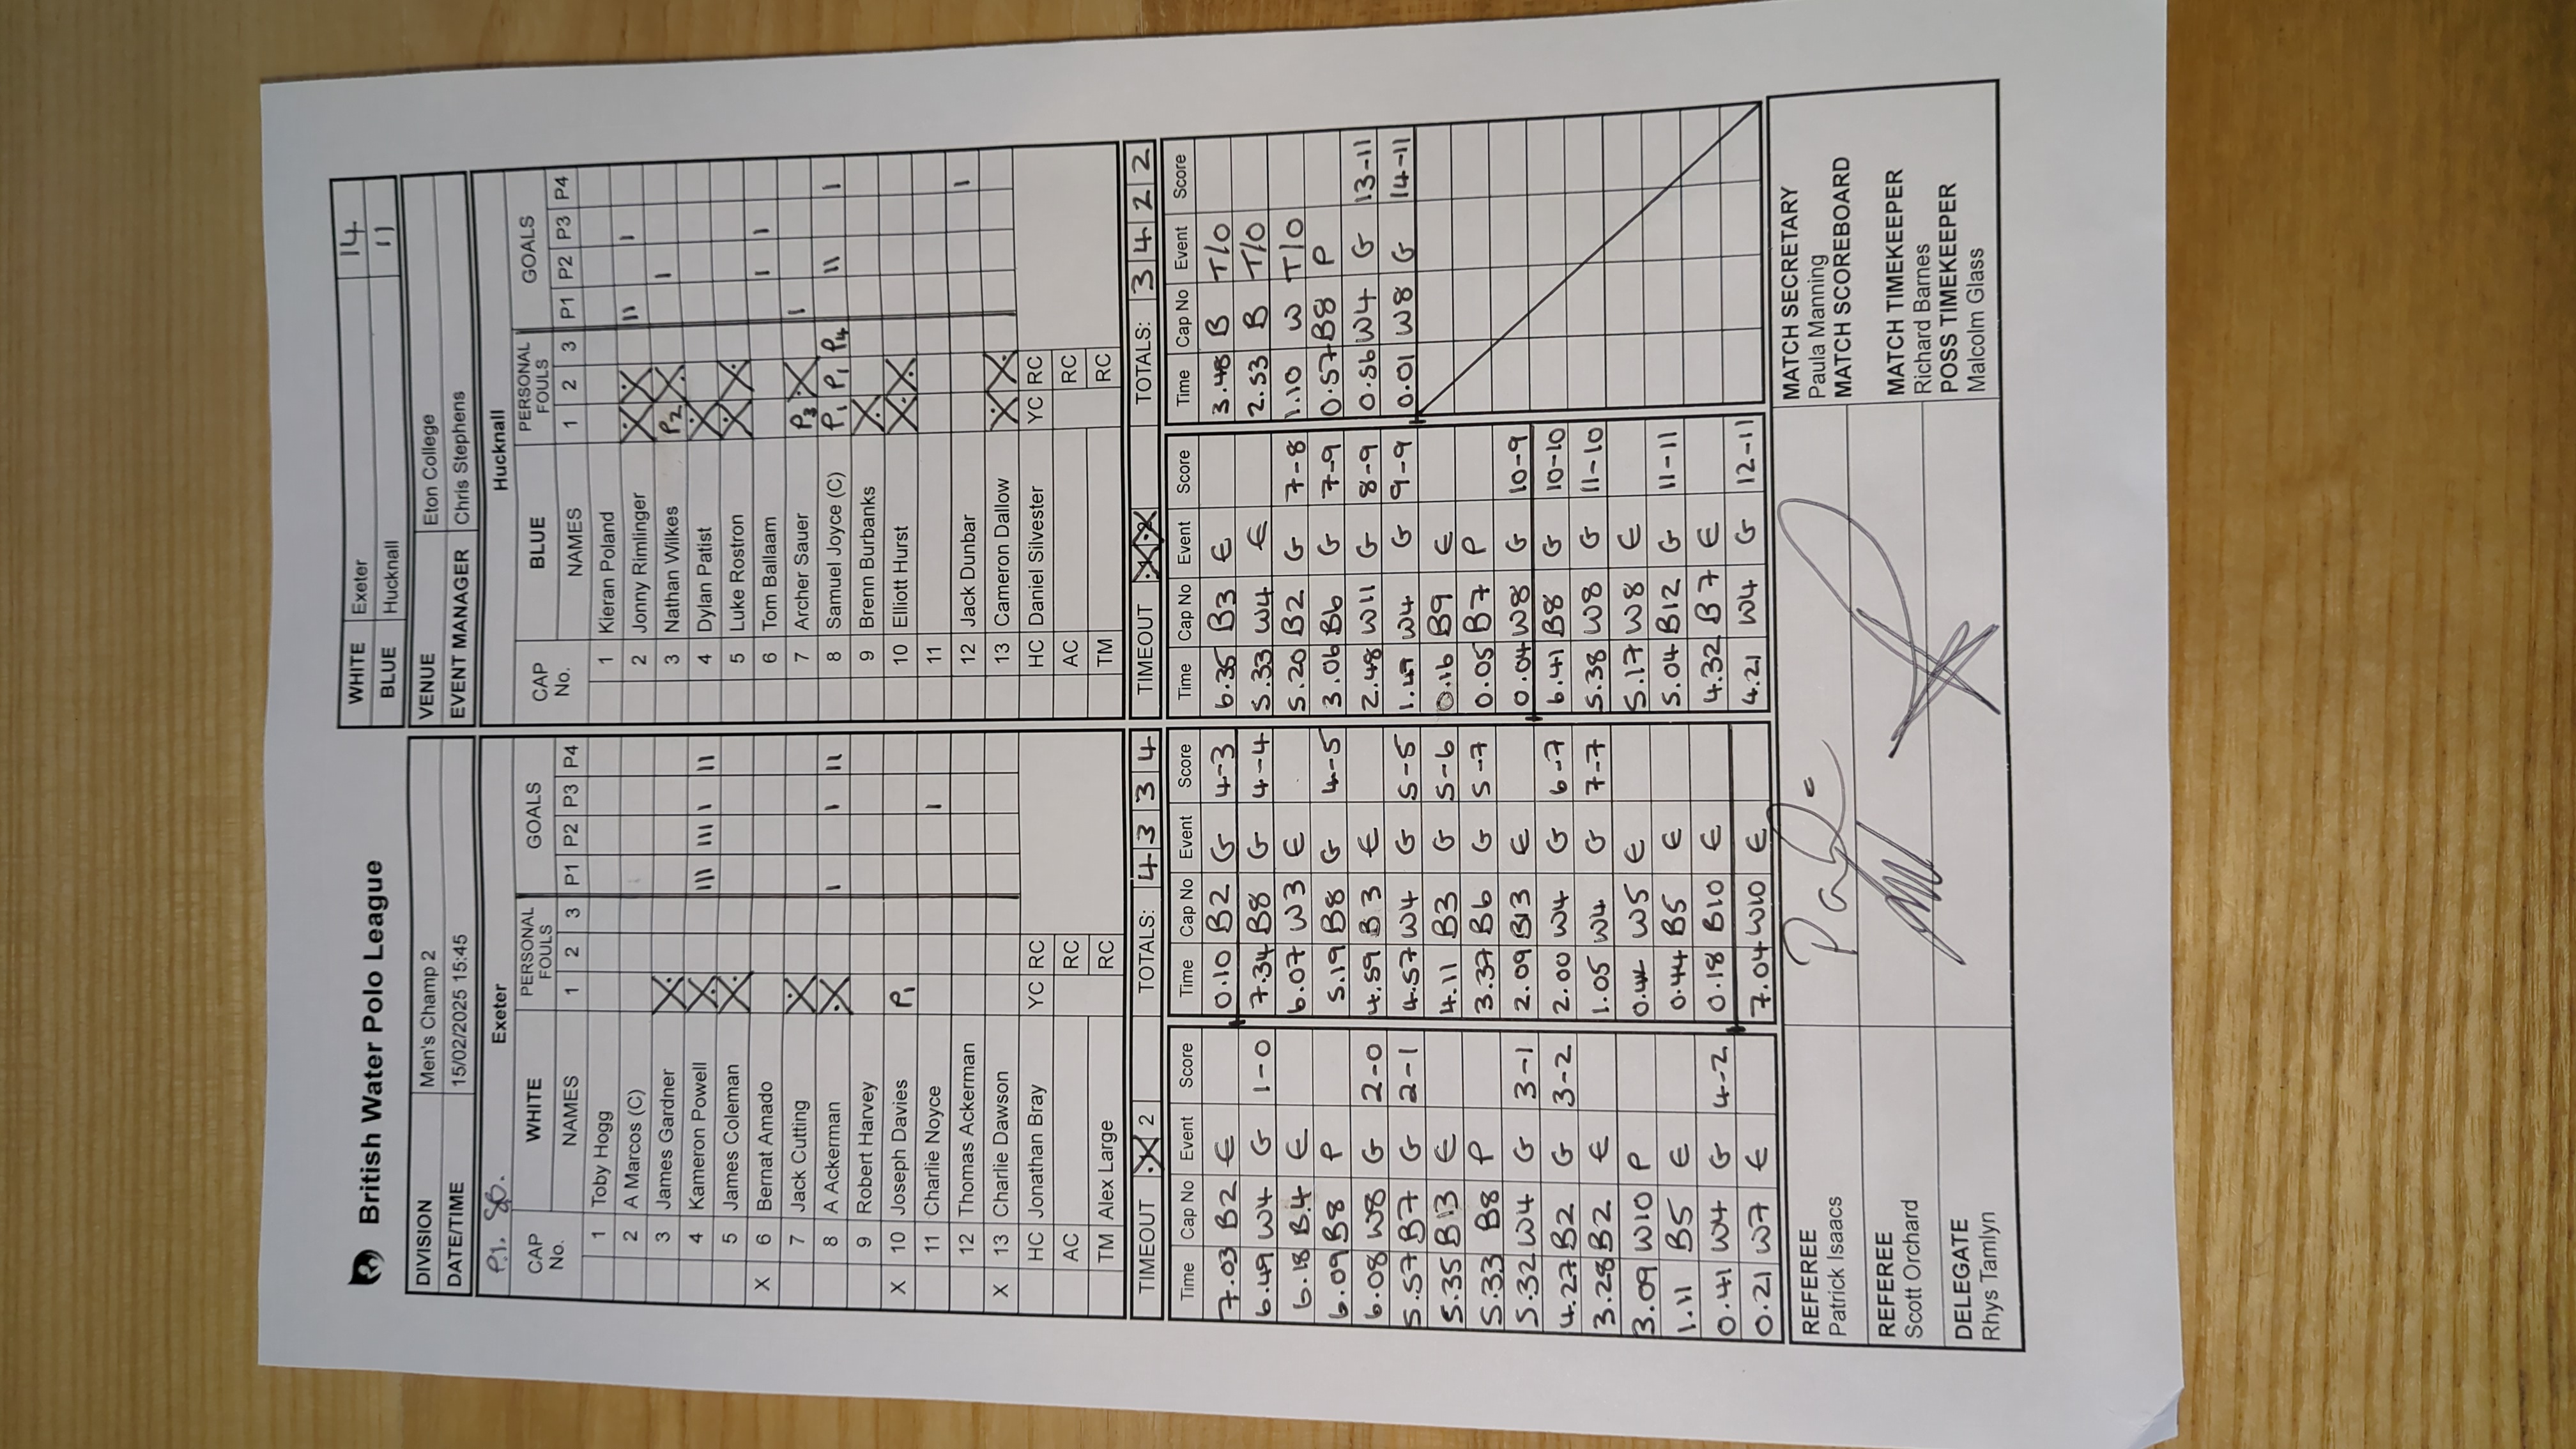 British Water Polo League
WHITE Exeter 14
BLUE Hucknall 11
DIVISION Men's Champ 2
DATE/TIME 15/02/2025 15:45
VENUE Eton College
EVENT MANAGER Chris Stephens
P.I. SO.
Exeter
CAP No. WHITE NAMES PERSONAL FOULS 1 2 3 GOALS P1 P2 P3 P4
1 Toby Hogg
2 A Marcos (C)
3 James Gardner X
4 Kameron Powell X III III I II
5 James Coleman X
X 6 Bernat Amado
7 Jack Cutting X
8 A Ackerman X I I II
9 Robert Harvey
X 10 Joseph Davies P1
11 Charlie Noyce I
12 Thomas Ackerman
X 13 Charlie Dawson
HC Jonathan Bray YC RC
AC RC
TM Alex Large RC
TIMEOUT X 2 TOTALS: 4 3 3 4
Hucknall
CAP No. BLUE NAMES PERSONAL FOULS 1 2 3 GOALS P1 P2 P3 P4
1 Kieran Poland
2 Jonny Rimlinger X X II I
3 Nathan Wilkes P2 X I
4 Dylan Patist X
5 Luke Rostron X X
6 Tom Ballaam I I
7 Archer Sauer P3 X I
8 Samuel Joyce (C) P1 P1 P4 II I
9 Brenn Burbanks X
10 Elliott Hurst X X
11
12 Jack Dunbar I
13 Cameron Dallow X X
HC Daniel Silvester YC RC
AC RC
TM RC
TIMEOUT X X TOTALS: 3 4 2 2
Time Cap No Event Score
7.03 B2 E
6.49 W4 G 1-0
6.18 B4 E
6.09 B8 P
6.08 W8 G 2-0
5.57 B7 G 2-1
5.35 B13 E
5.33 B8 P
5.32 W4 G 3-1
4.27 B2 G 3-2
3.28 B2 E
3.09 W10 P
1.11 B5 E
0.41 W4 G 4-2
0.21 W7 E
Time Cap No Event Score
0.10 B2 G 4-3
7.34 B8 G 4-4
6.07 W3 E
5.19 B8 G 4-5
4.59 B3 E
4.57 W4 G 5-5
4.11 B3 G 5-6
3.37 B6 G 5-7
2.09 B13 E
2.00 W4 G 6-7
1.05 W4 G 7-7
W5 E
0.44 B5 E
0.18 B10 E
7.04 W10 E
Time Cap No Event Score
6.35 B3 E
5.33 W4 E
5.20 B2 G 7-8
3.06 B6 G 7-9
2.48 W11 G 8-9
W4 G 9-9
0.16 B9 E
0.05 B7 P
0.04 W8 G 10-9
6.41 B8 G 10-10
5.38 W8 G 11-10
5.17 W8 E
5.04 B12 G 11-11
4.32 B7 E
4.21 W4 G 12-11
Time Cap No Event Score
3.48 B T/O
2.53 B T/O
1.10 W T/O
0.57 B8 P
0.56 W4 G 13-11
0.01 W8 G 14-11
REFEREE
Patrick Isaacs
REFEREE
Scott Orchard
DELEGATE
Rhys Tamlyn
MATCH SECRETARY
Paula Manning
MATCH SCOREBOARD
MATCH TIMEKEEPER
Richard Barnes
POSS TIMEKEEPER
Malcolm Glass